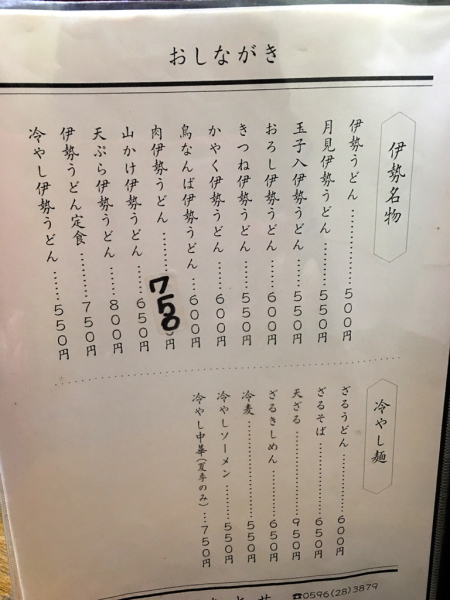 おしながき
伊勢名物
伊勢うどん………………500円
月見伊勢うどん…………550円
玉子入伊勢うどん………550円
おろし伊勢うどん………600円
きつね伊勢うどん………550円
かやく伊勢うどん………600円
鳥なんば伊勢うどん……600円
肉伊勢うどん……………750円
山かけ伊勢うどん………650円
天ぷら伊勢うどん………800円
伊勢うどん定食…………750円
冷やし伊勢うどん………550円
冷やし麺
ざるうどん………………600円
ざるそば…………………650円
天ざる……………………950円
ざるきしめん……………650円
冷麦………………………550円
冷やしソーメン…………550円
冷やし中華(夏季のみ)…750円
☎0596(28)3879